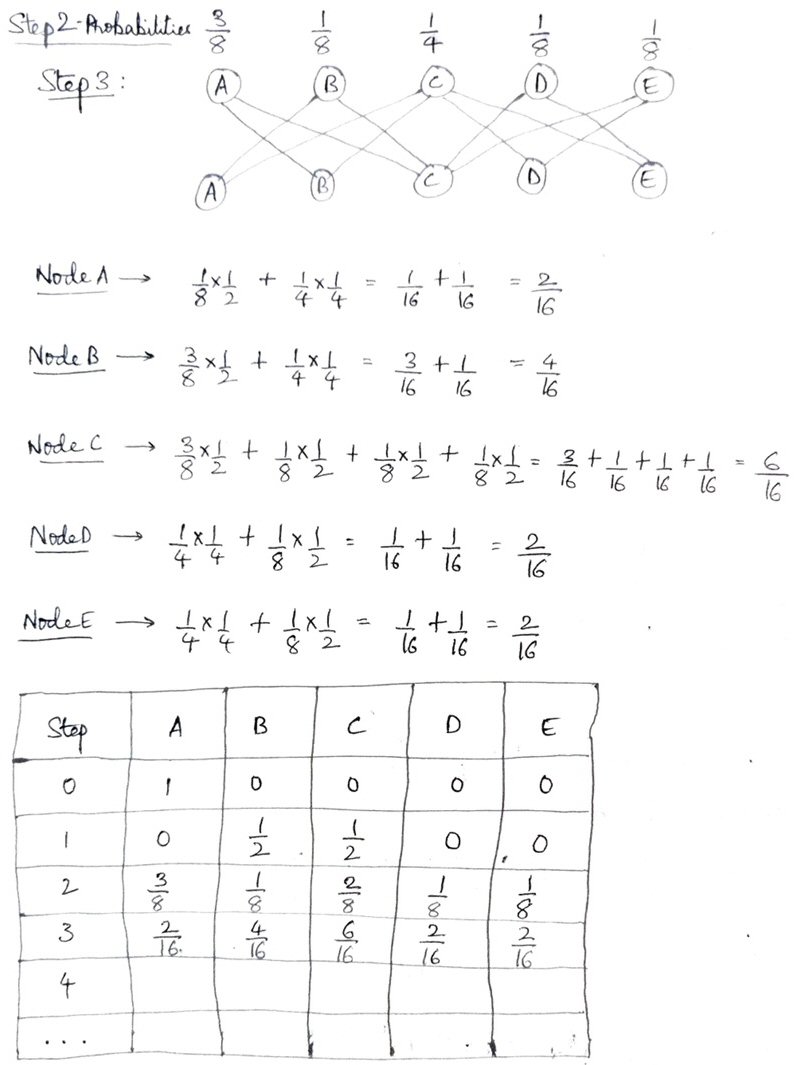 Step2-Probabilities 3/8 1/8 1/4 1/8 1/8
Step 3: A B C D E
A B C D E
Node A → 1/8 × 1/2 + 1/4 × 1/4 = 1/16 + 1/16 = 2/16
Node B → 3/8 × 1/2 + 1/4 × 1/4 = 3/16 + 1/16 = 4/16
Node C → 3/8 × 1/2 + 1/8 × 1/2 + 1/8 × 1/2 + 1/8 × 1/2 = 3/16 + 1/16 + 1/16 + 1/16 = 6/16
Node D → 1/4 × 1/4 + 1/8 × 1/2 = 1/16 + 1/16 = 2/16
Node E → 1/4 × 1/4 + 1/8 × 1/2 = 1/16 + 1/16 = 2/16
Step A B C D E
0 1 0 0 0 0
1 0 1/2 1/2 0 0
2 3/8 1/8 2/8 1/8 1/8
3 2/16 4/16 6/16 2/16 2/16
4
...